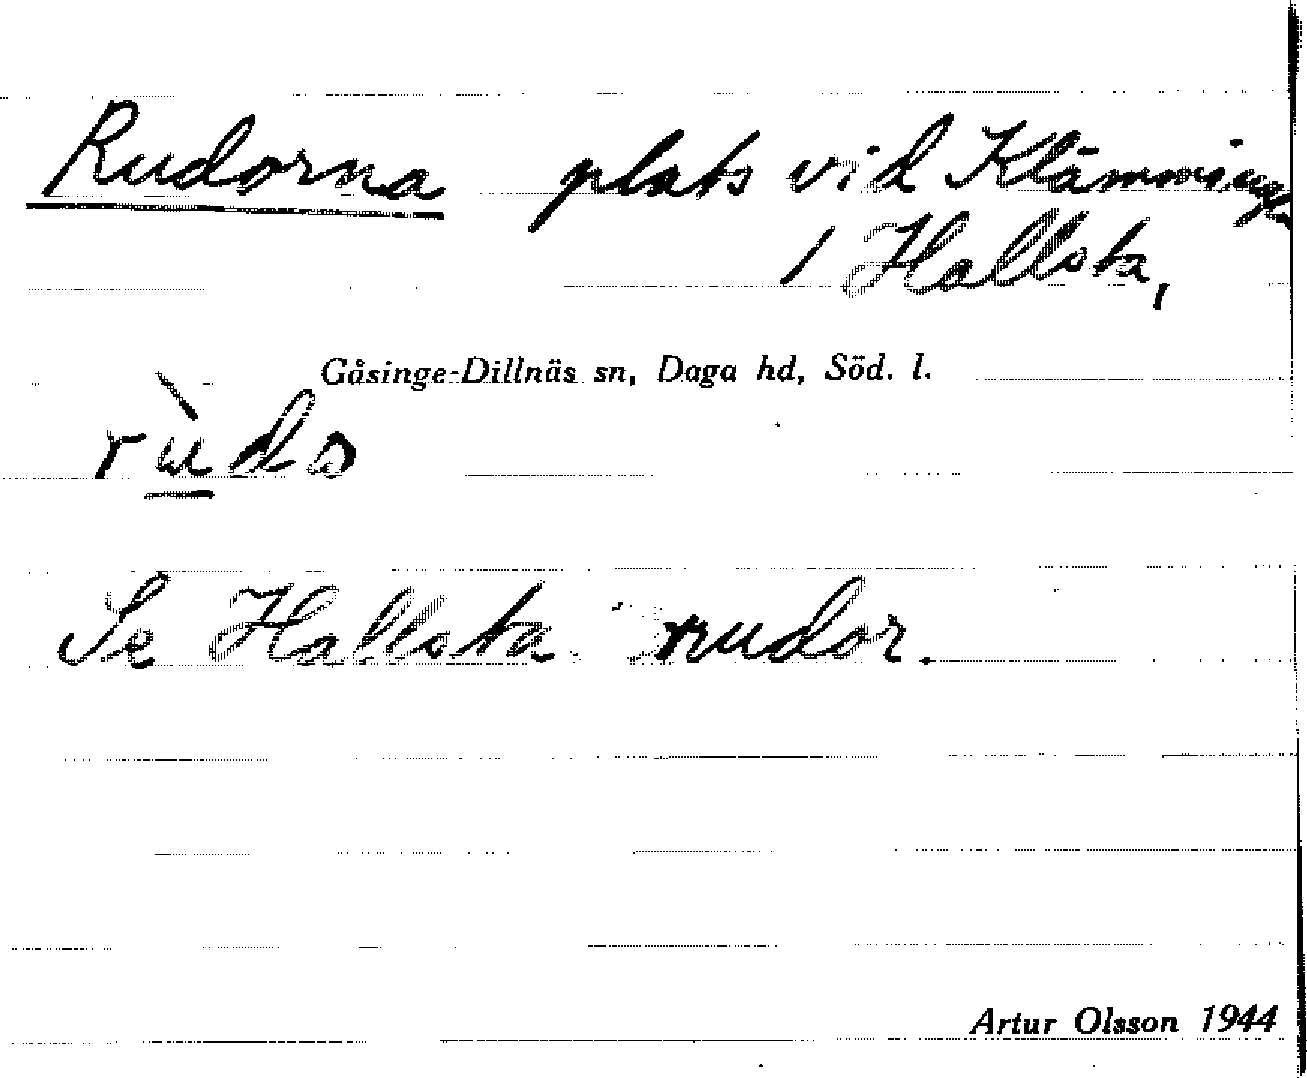 Rudorna plats vid Klämmingen
/ Hallsta,
Gåsinge-Dillnäs sn, Daga hd, Söd. l.
rùds
Se Hallsta rudor.
Artur Olsson 1944